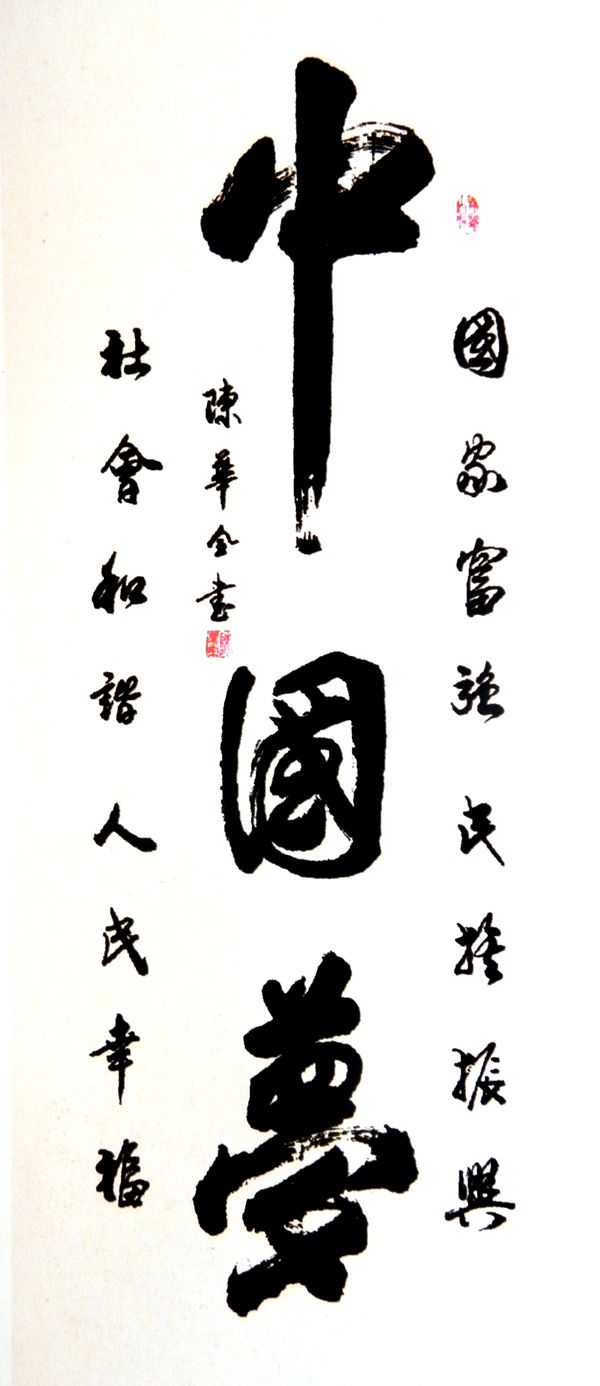 國家富強民族振興
中國夢
陳華全書
社會和諧人民幸福